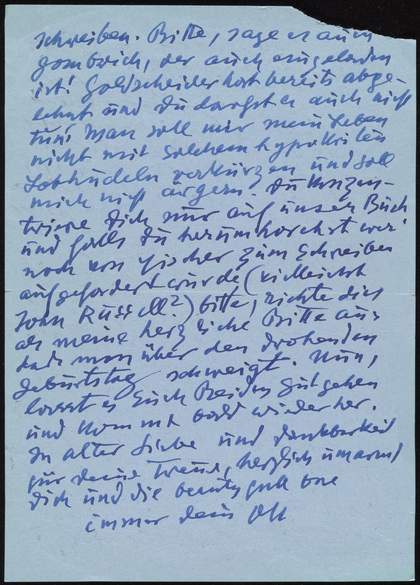 schreiben. Bitte, sage es auch
Gombrich, der auch eingeladen
ist! Goldscheider hat bereits abge-
lehnt und du darfst es auch nicht
tun! Man soll mir mein Leben
nicht mit solchen hypokriten
Lobhudeln verkürzen und soll
mich nicht ärgern. Du konzen-
triere dich nur auf unser Buch
und falls du herumhorchst wer
noch von Fischer zum Schreiben
aufgefordert wurde (vielleicht
John Russell?) bitte, richte dies
als meine herzliche Bitte aus
dass man über den drohenden
Geburtstag schweigt. Nun,
lasst es Euch Beiden gut gehen
und kommt bald wieder her.
In alter Liebe und Dankbarkeit
für deine Treue, herzlich umarmt
dich und die
immer dein OK